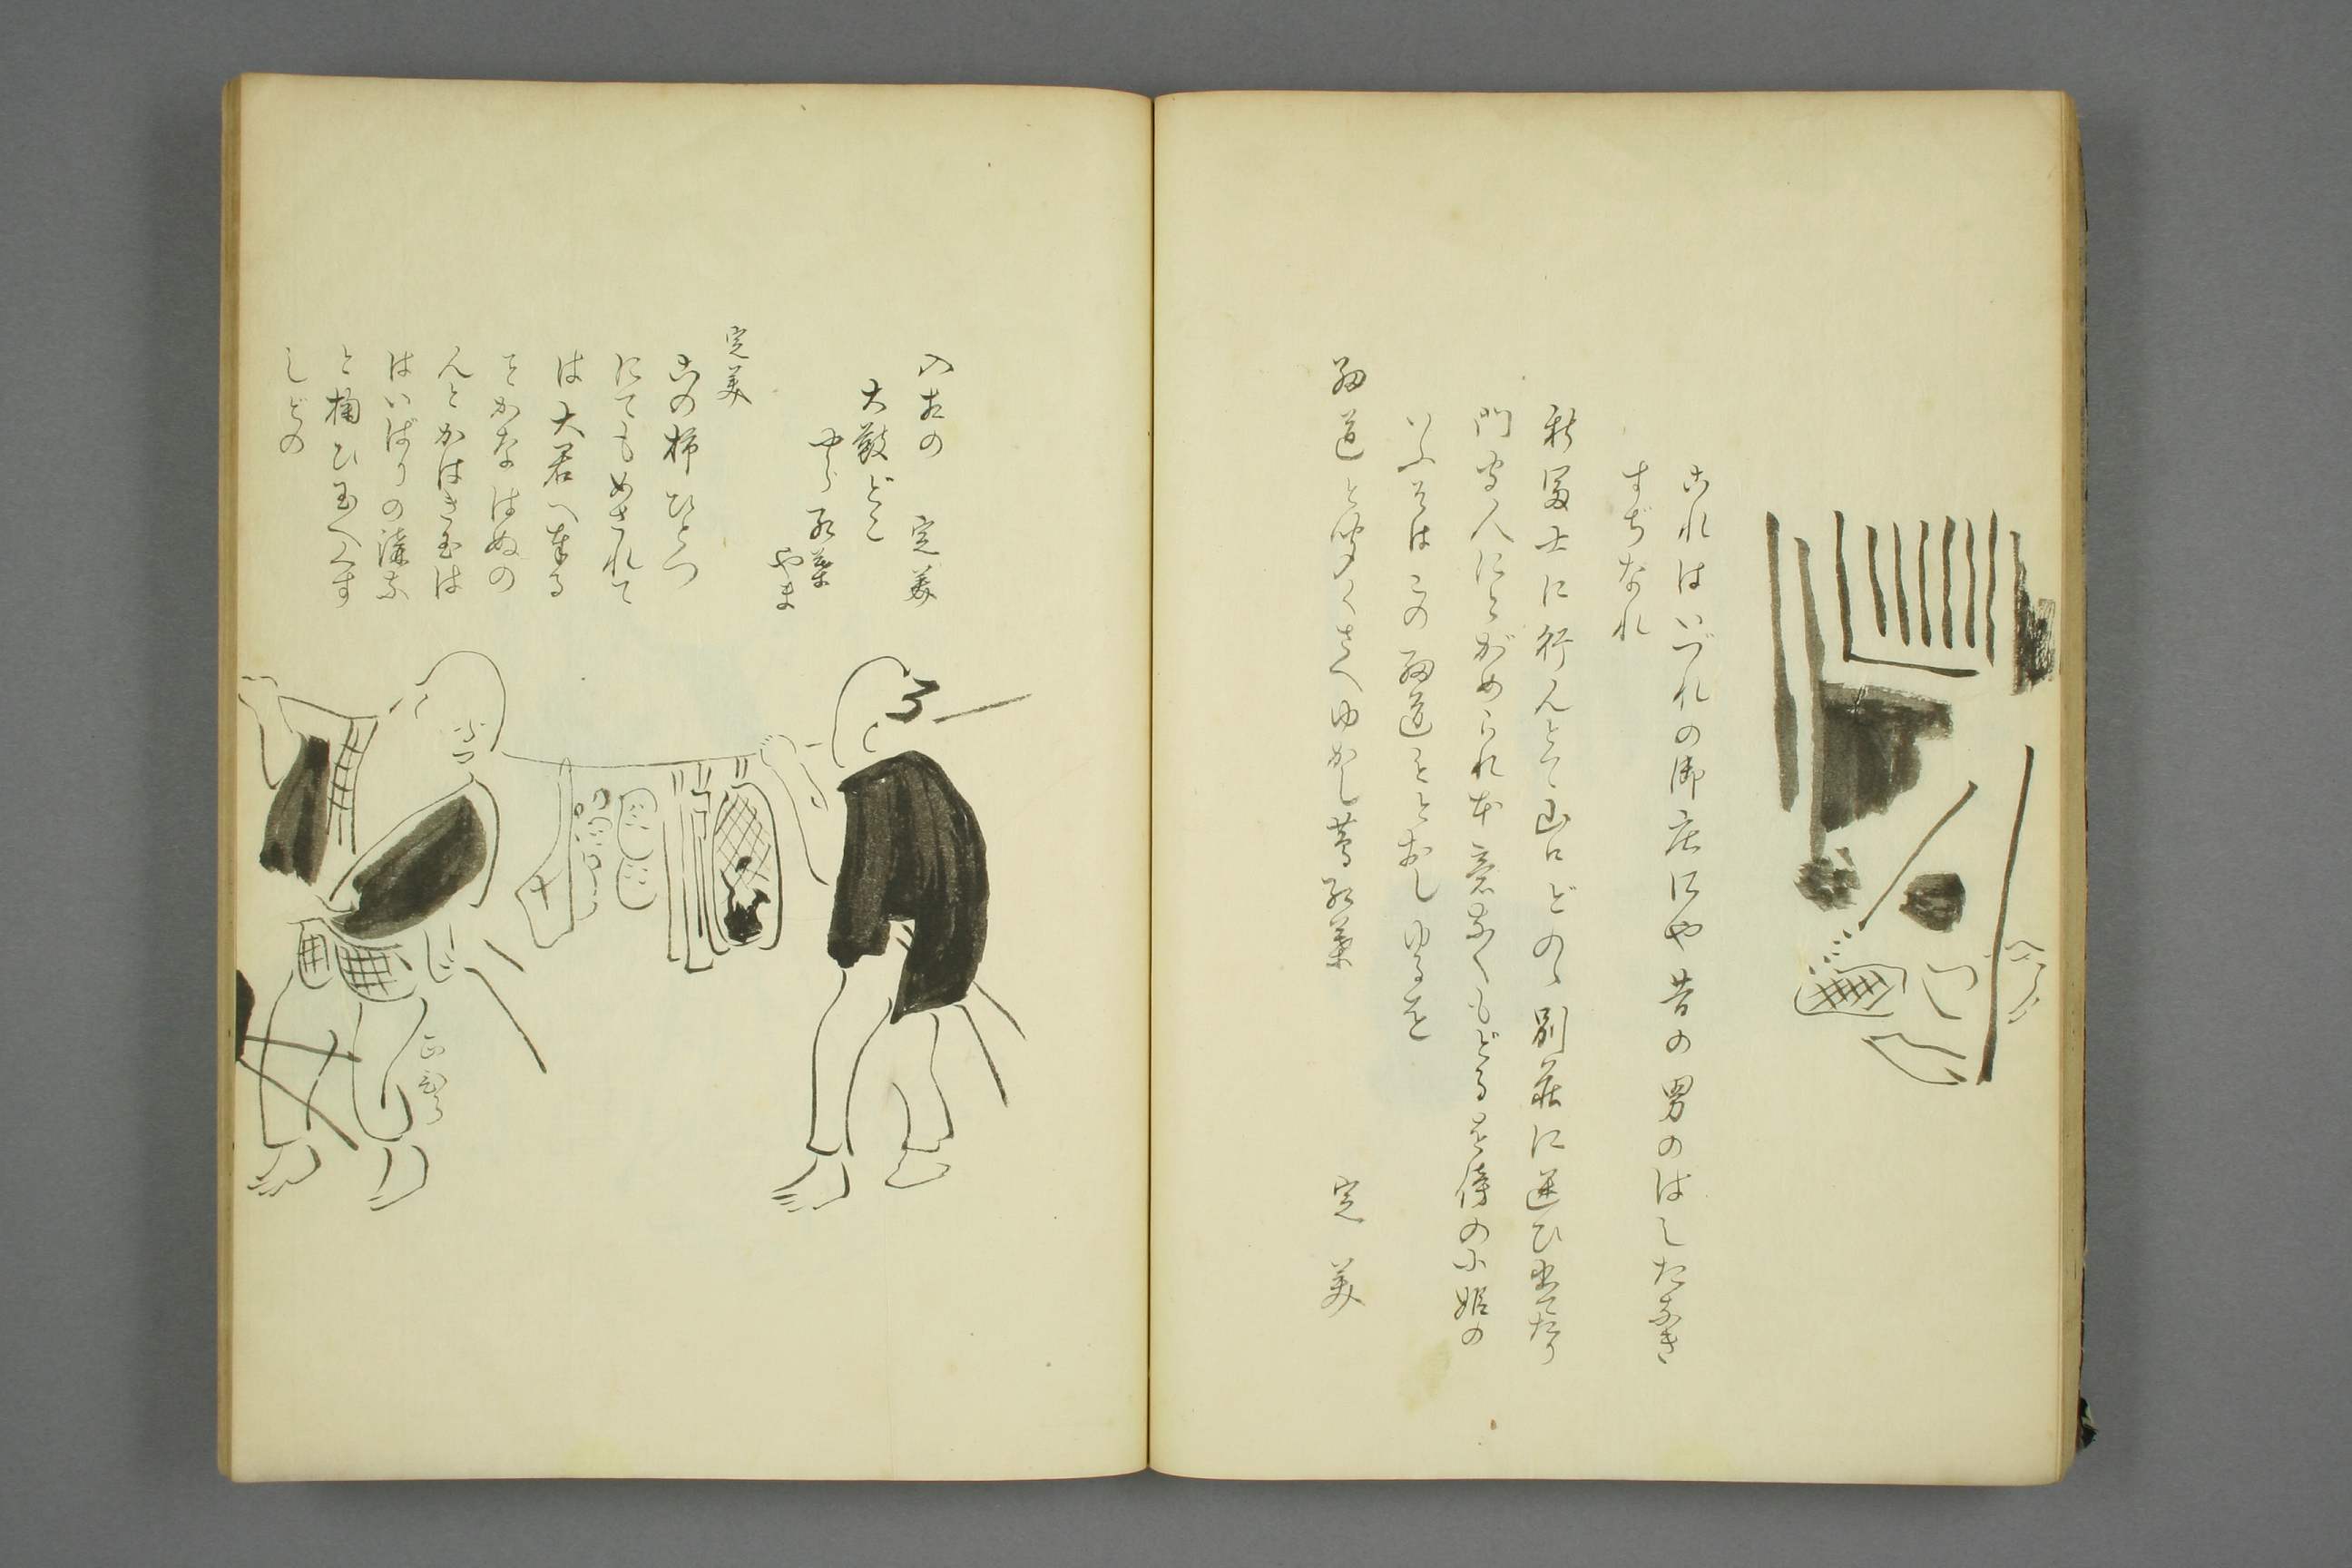 これはいづれの御店にや昔の男のはしたなき
すぢなれ
新冨士に行んとて山口どのゝ別荘に迷ひ出たり
門守人にとがめられ本意なくもどるを侍の小姫の
いふそはこの細道をとおしゆるを
細道と聞くさへゆかし蔦紅葉
定美
入相の
定美
大鼓どこ
やら紅葉
やま
定美
この柿ひとつ
にてもめされて
は大君へ奉る
そかなはぬの
んとかはき玉は
はいばりの溝な
と掬ひ玉へくす
しどの